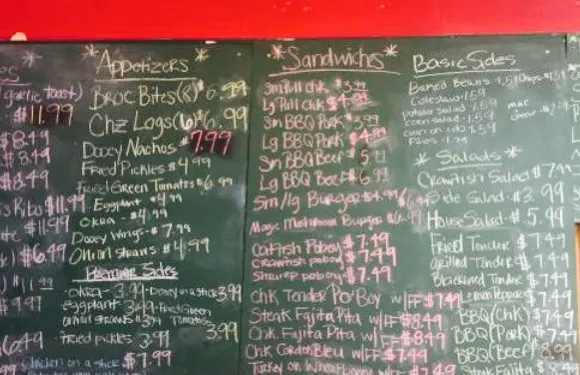 (garlic toast)
$11.99
$8.49
$8.49
$8.49
Ribs $11.99
$11.99
$6.49
$9.99
$6.49
* Appetizers *
Broc Bites(8) $6.99
Chz Logs(6) $6.99
Dooey Nachos $7.99
Fried Pickles $4.99
Fried Green Tomatoes $6.99
Eggplant $4.99
Okra - $4.99
Dooey Wings - $7.99
Onion straws $4.99
Sides
okra - 3.99 - Dooey on a stick 3.99
eggplant 3.99 - Fried Green Tomatoes 3.99
onion straws $3.99
Fried pickles 3.99
Chicken on a stick $7.99
* Sandwiches *
Sm Pull chk $3.99
Lg Pull Chk $4.99
Sm BBQ Pork $3.99
Lg BBQ Pork $4.99
Sm BBQ Beef
Lg BBQ Beef
Sm/lg Burger
Magic Mushroom Burger
Catfish Poboy $7.49
Crawfish poboy $7.49
Shrimp poboy $7.49
Chk Tender Po Boy w/FF $7.49
Steak Fajita Pita w/FF $8.49
Chk. Fajita Pita w/FF $8.49
Chk Cordon Bleu w/FF $7.49
Turkey on Wheat
Basic Sides
Baked Beans 1.59 Chips
Coleslaw 1.59
potato salad 1.59
corn salad 1.59
corn on cob 1.59
mac
* Salads *
Crawfish Salad $7.99
Side Salad - $3.99
House Salad - $5.99
Fried Tender $7.49
Grilled Tender $7.49
Blackened Tender $7.49
Lemon Pepper $7.49
BBQ (Chk) $7.49
BBQ (Pork) $7.49
BBQ (Beef) 8.99
Steak Fajita